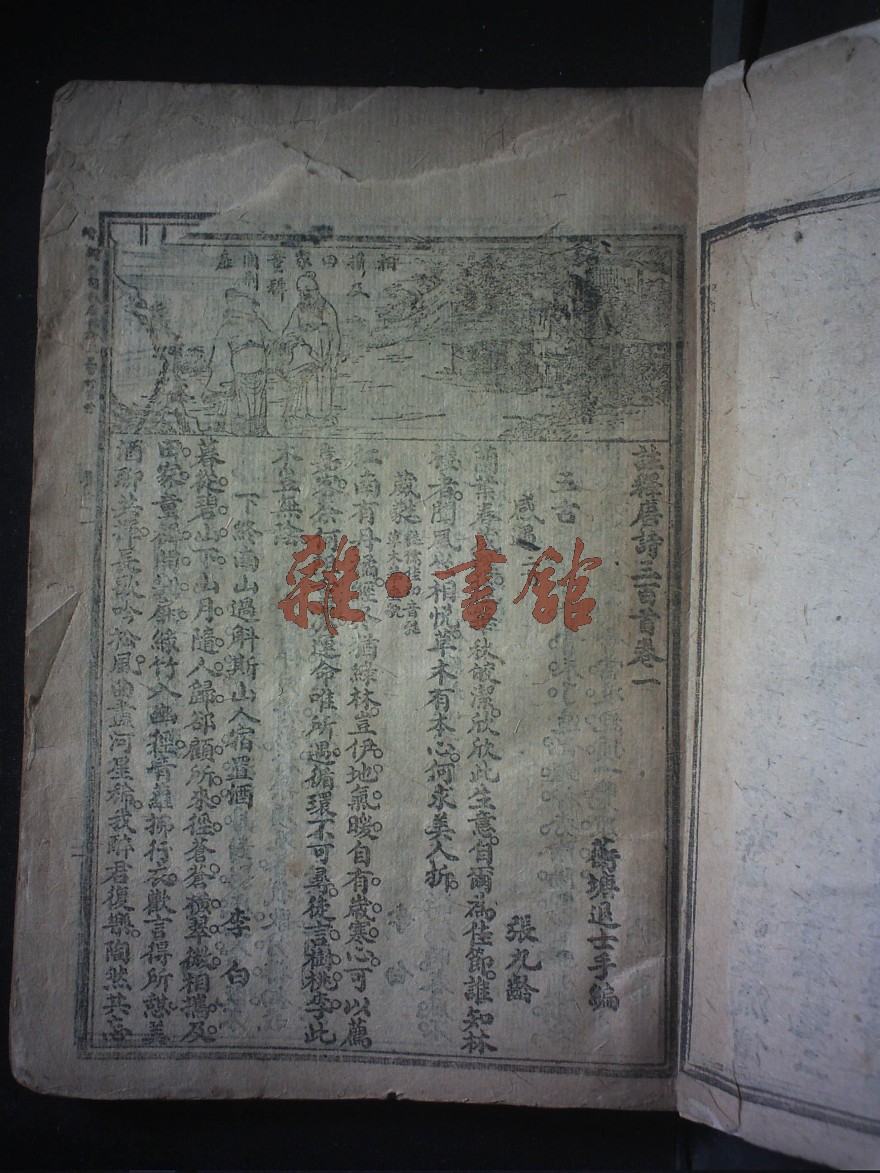 相攜及
田家
童稚
開荆
扉
註釋唐詩三百首卷一
蘅塘退士手編
五古
感遇二首
張九齡
蘭葉春葳蕤桂華秋皎潔欣欣此生意自爾為佳節誰知林
棲者聞風坐相悅草木有本心何求美人折
葳蕤
江南有丹橘經冬猶綠林豈伊地氣暖自有歲寒心可以薦
嘉客奈何阻重深運命唯所遇循環不可尋徒言樹桃李此
木豈無陰
下終南山過斛斯山人宿置酒
李白
暮從碧山下山月隨人歸卻顧所來徑蒼蒼橫翠微相攜及
田家童稚開荆扉綠竹入幽徑青蘿拂行衣歡言得所憩美
酒聊共揮長歌吟松風曲盡河星稀我醉君復樂陶然共忘
雜·書館